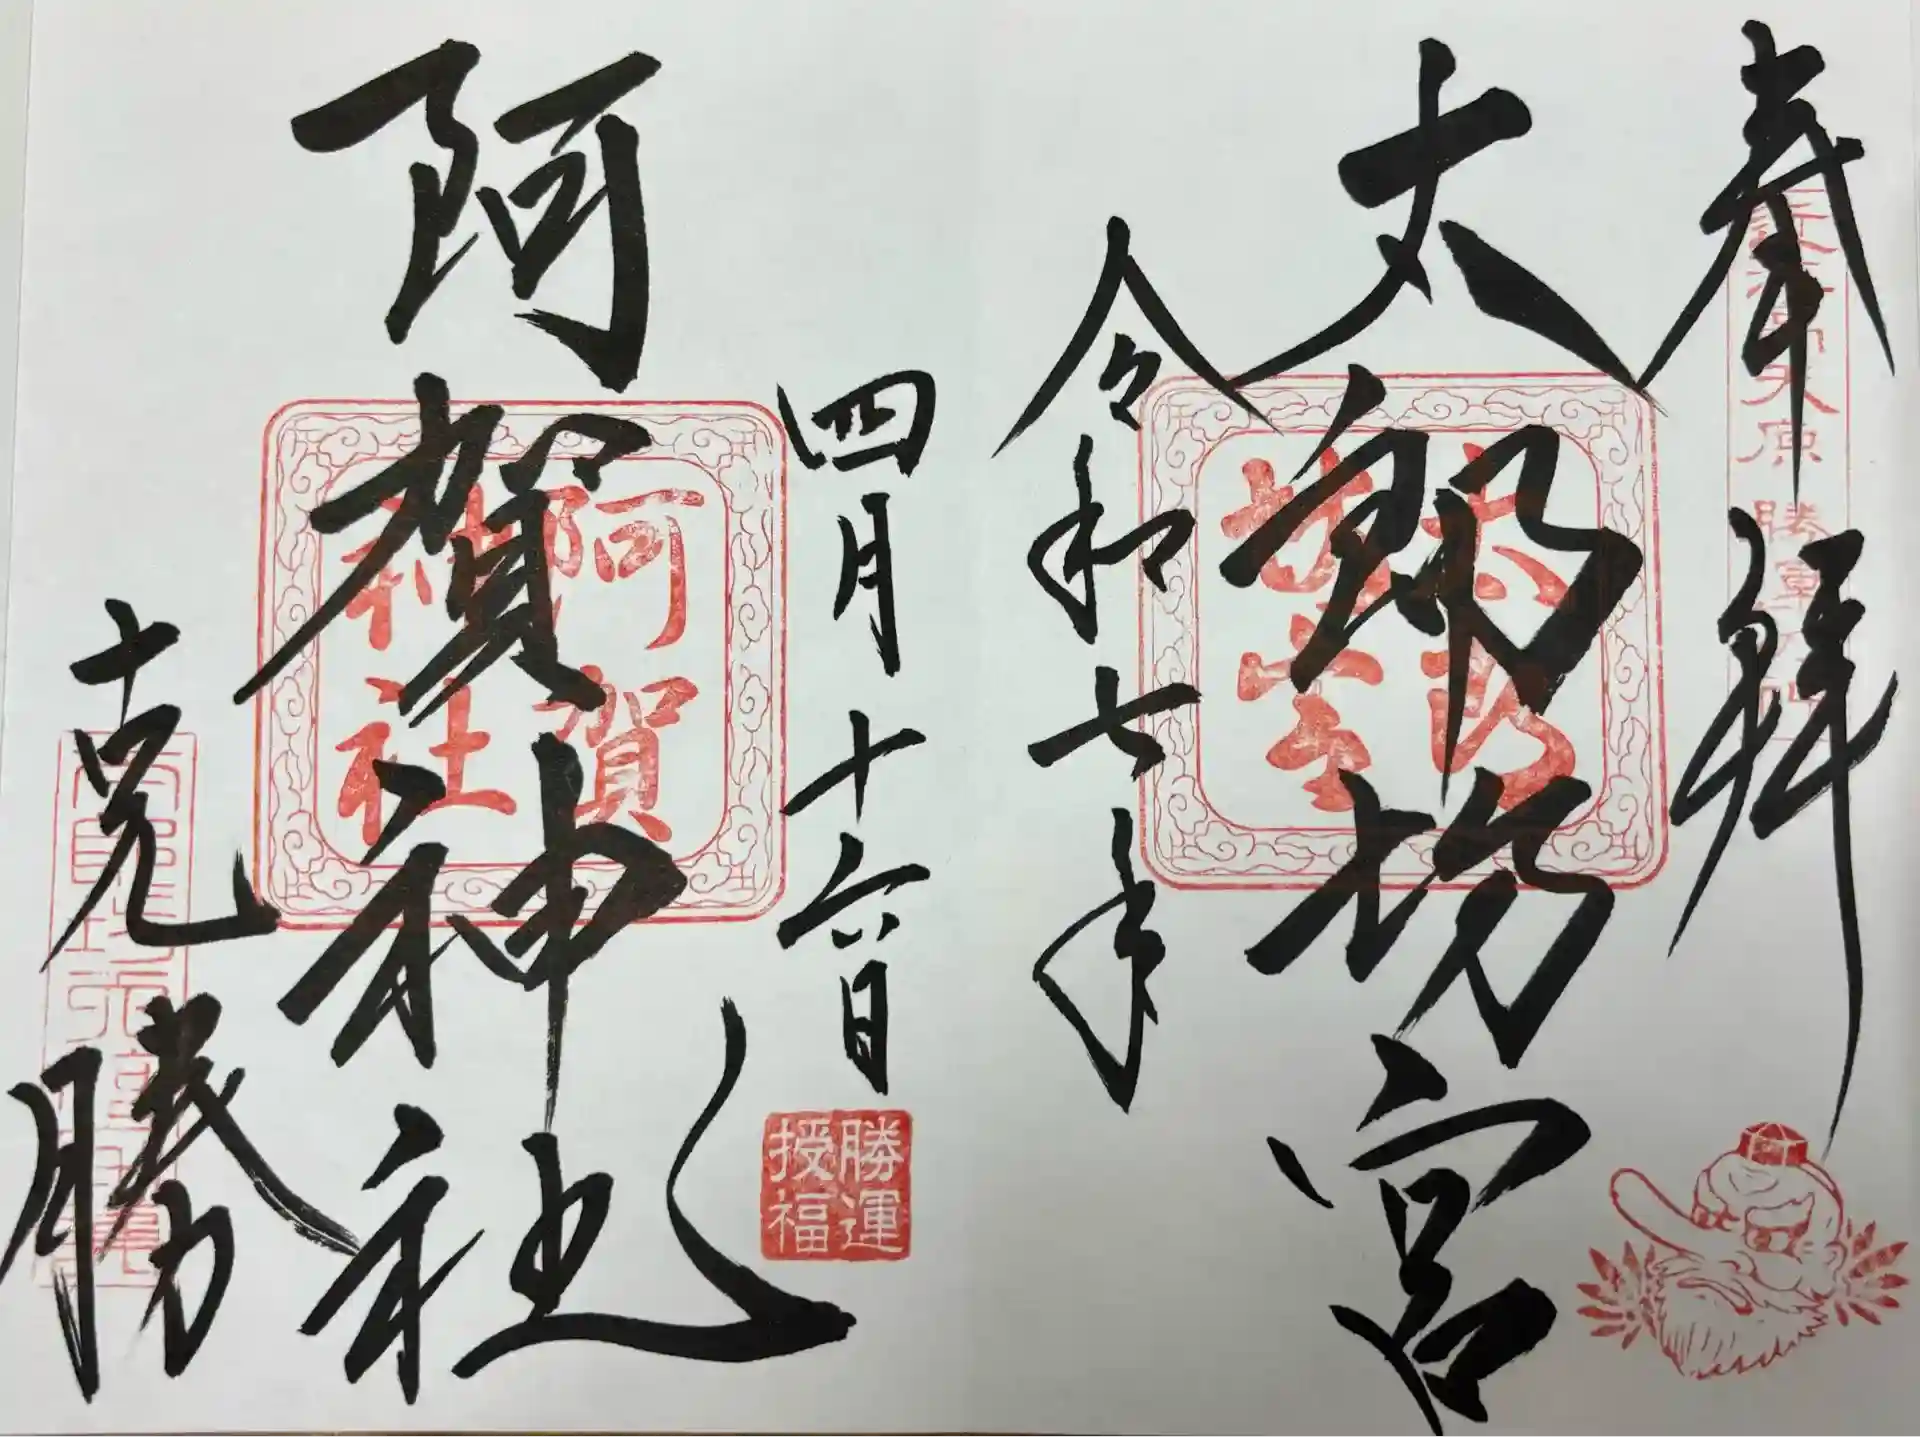 奉拝
太郎坊宮
令和七年
四月十六日
勝運授福
阿賀神社
阿賀神社
克勝